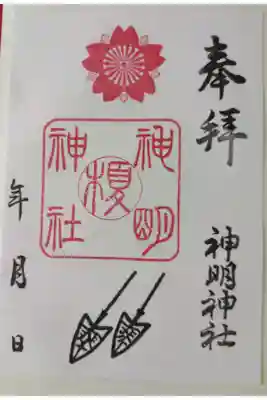 奉拝
神明
榎
神社
神明神社
年 月 日